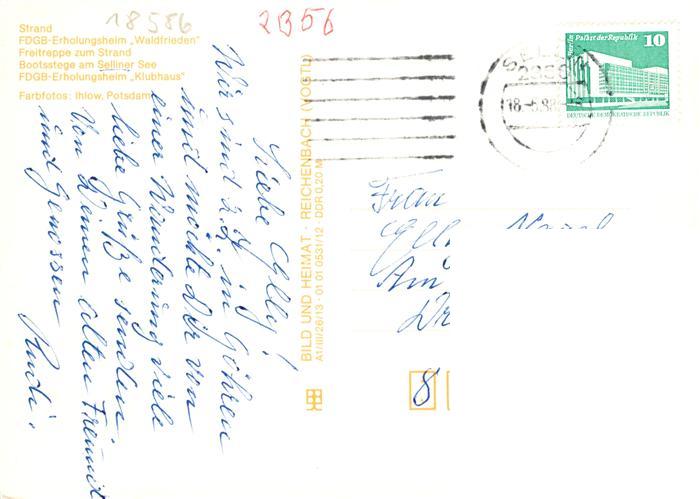 18586
2356
Strand
FDGB-Erholungsheim „Waldfrieden"
Freitreppe zum Strand
Bootsstege am Selliner See
FDGB-Erholungsheim „Klubhaus"
Farbfotos: Ihlow, Potsdam
Liebe Elly!
Wir sind z.Z. in Göhren
und möchte Dir von
einer Wanderung viele
liebe Grüße senden.
Von Deinen alten Freund
und Genossen
Rudi.
BILD UND HEIMAT · REICHENBACH (VOGTL)
A1/III/26/13 · 01 01 0531/12 DDR 0,20 M
Berlin Palast der Republik
10
DEUTSCHE DEMOKRATISCHE REPUBLIK
2356
18.-6.86
Frau
Am
8